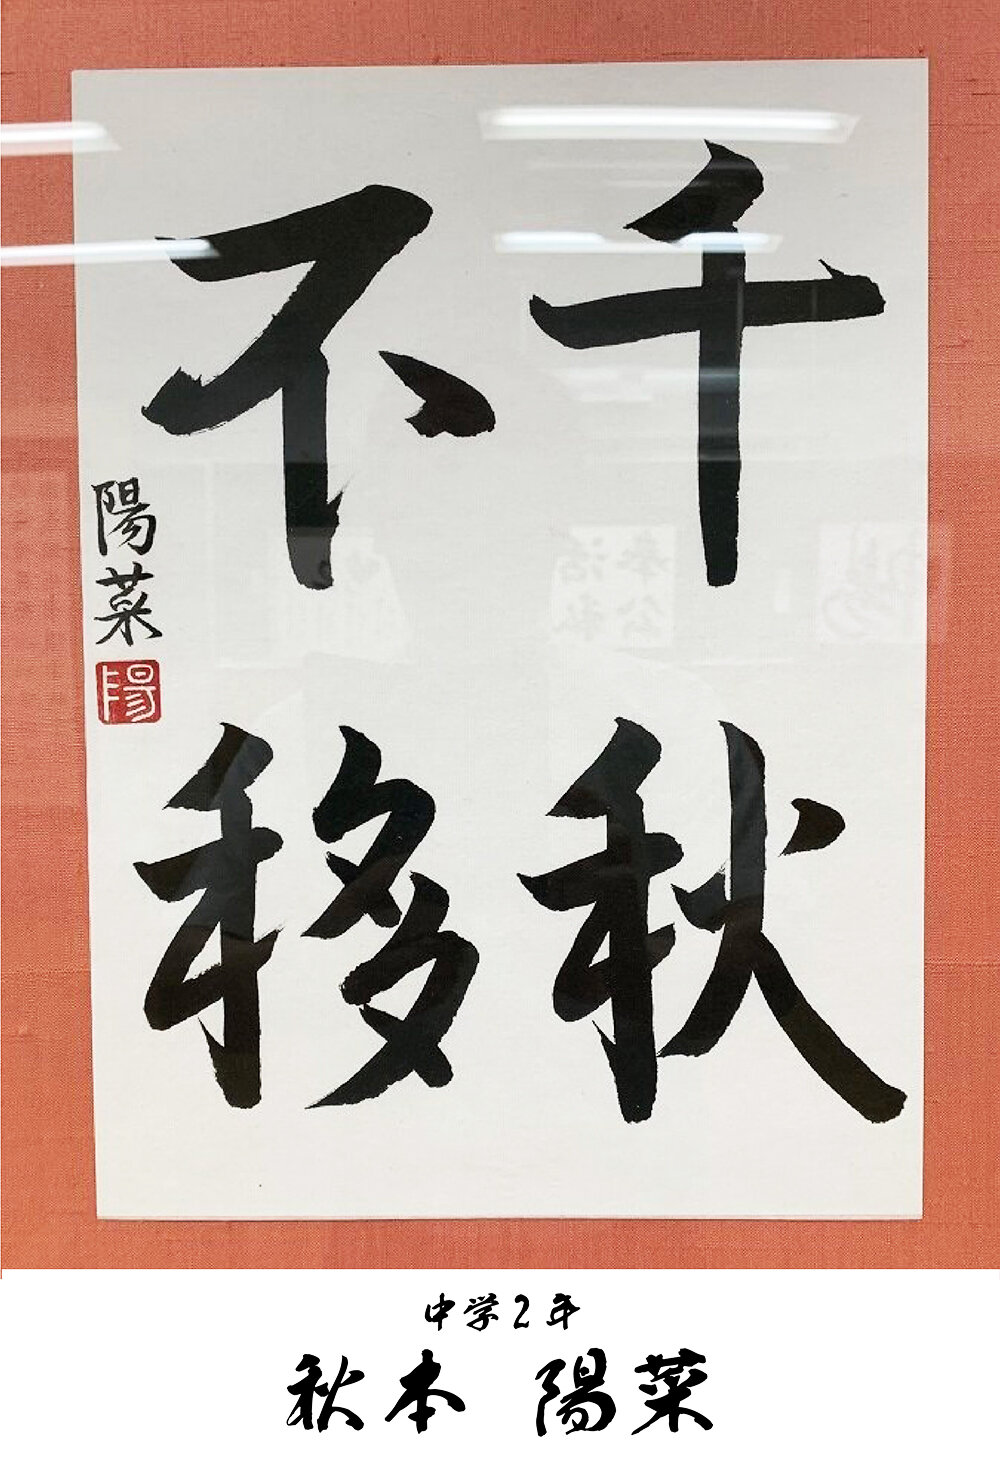 千秋
不移
陽菜
陽
中学2年
秋本 陽菜